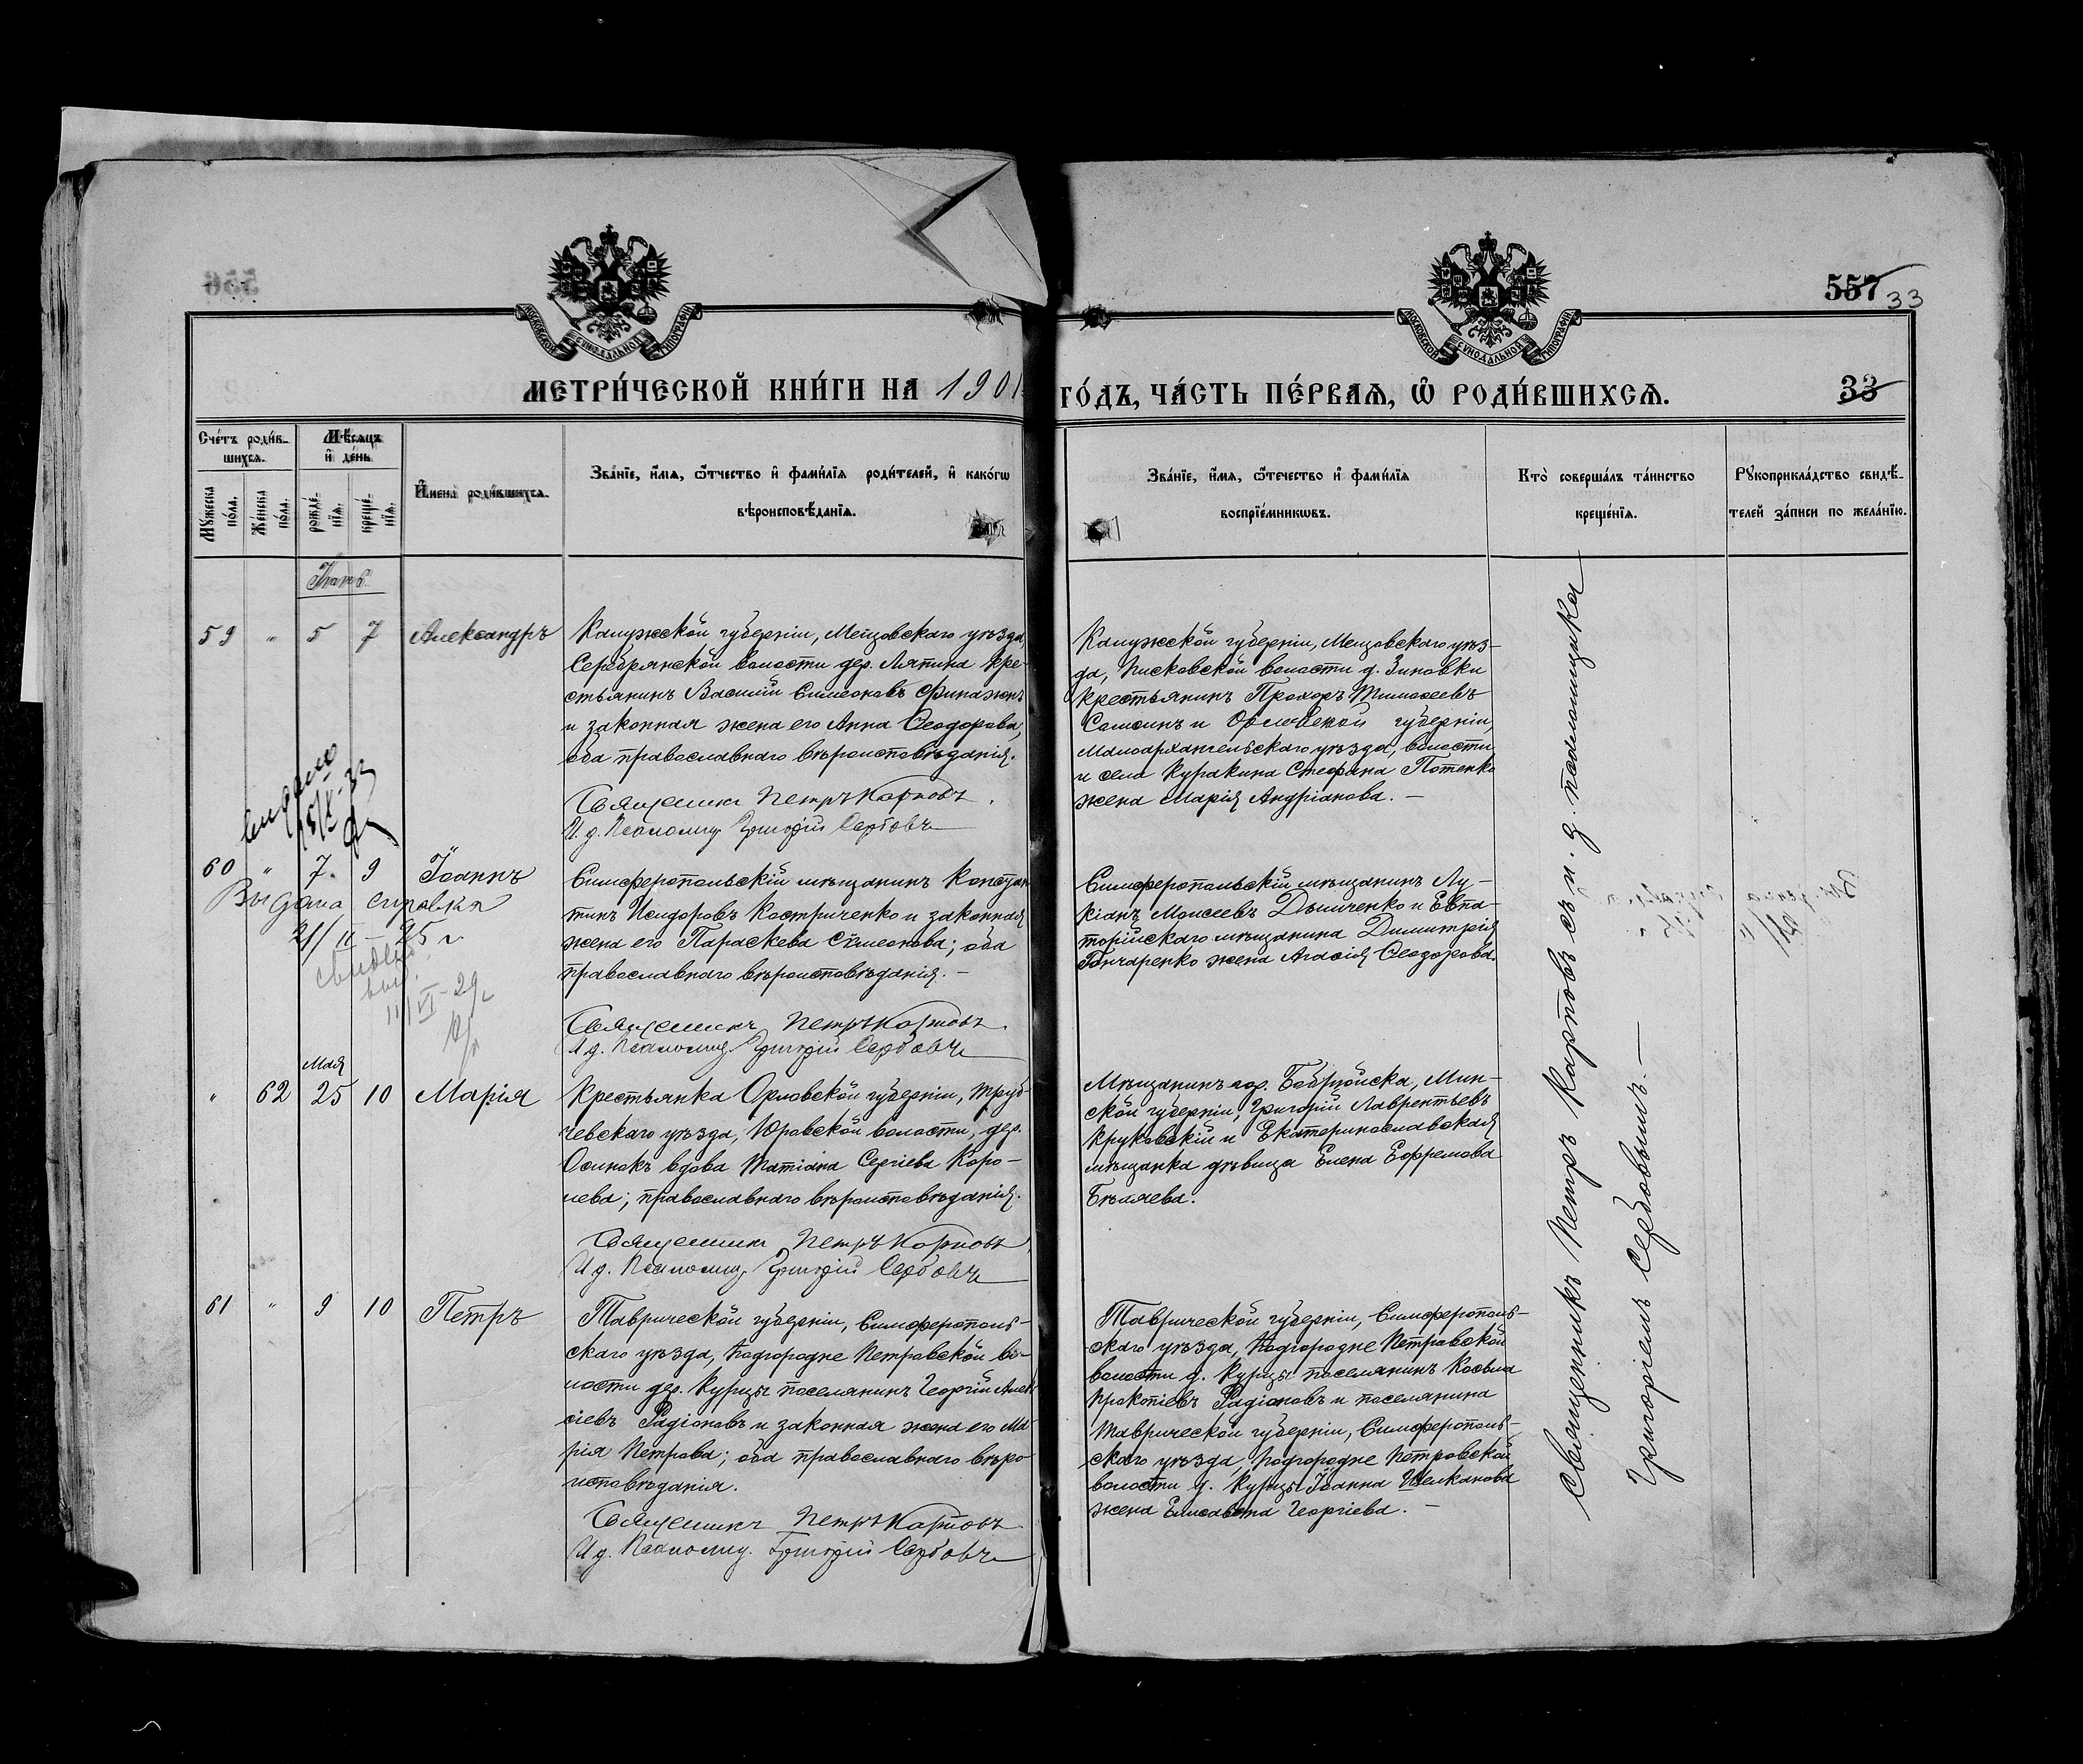 557 33
МОСКОВСКОЙ СУНОДАЛЬНОЙ ТИПОГРАФІИ
МОСКОВСКОЙ СУНОДАЛЬНОЙ ТИПОГРАФІИ
МЕТРИ́ЧЕСКОЙ КНИ́ГИ НА 1901
ГО́ДЪ, ЧА́СТЬ ПЕ́РВАѦ, Ѡ҆ РОДИ́ВШИХСѦ.
33
Сче́тъ роди́в-
шихсѧ.
Мѣ́сѧцъ
и҆ де́нь
Мꙋ́жеска
по́ла.
Же́нска
по́ла.
рожде́-
нїѧ.
креще́-
нїѧ.
И҆мена̀ роди́вшихсѧ.
Зва́нїе, и҆́мѧ, ѻ҆́тчество и҆ фами́лїѧ роди́телей, и҆ како́гѡ
вѣроисповѣ́данїѧ.
Зва́нїе, и҆́мѧ, ѻ҆те́чество и҆ фами́лїѧ
воспрїе́мникѡвъ.
Кто̀ соверша́лъ та́инство
креще́нїѧ.
Рꙋкоприкла́дство свидѣ́-
телей за́писи по жела́нїю.
59 " 5 7 Александръ
Калужской губерніи, Мещовскаго уѣзда,
Серебрянской волости дер. Ляпина кре-
стьянинъ Василій Симеоновъ
и законная жена его Анна Ѳеодорова,
оба православнаго вѣроисповѣданія.
Священникъ Петръ Карповъ.
И. д. Псаломщ. Григорій Сербовъ
Калужской губерніи, Мещовскаго уѣз-
да, волости д. Зиновки
крестьянинъ Прохоръ Тимоѳеевъ
и Орловской губерніи,
Малоархангельскаго уѣзда, волости
и села Куракина Стефана Потенко
жена Марія Андріанова. –
выдано
60 " 7. 9 Іоаннъ
Выдана справка
21/II – 25 г.
11/VI – 29 г
Симферопольскій мѣщанинъ Констан
тинъ Исидоровъ Костриченко и законная
жена его Параскева Симеонова; оба
православнаго вѣроисповѣданія. –
Священникъ Петръ Карповъ.
И. д. Псаломщ. Григорій Сербовъ
Симферопольскій мѣщанинъ Лу-
кіанъ Моисеевъ и Евпа-
торійскаго мѣщанина Димитрія
Гончаренко жена Агаѳія Ѳеодорова.
Мая
" 62 25 10 Марія
Крестьянка Орловской губерніи, Труб-
чевскаго уѣзда, Юровской волости, дер.
вдова Татіана Сергіева Коро-
лева; православнаго вѣроисповѣданія.
Священникъ Петръ Карповъ
И. д. Псаломщ. Григорій Сербовъ
Мѣщанинъ гор. Бобруйска, Мин-
ской губерніи, Григорій Лаврентьевъ
Круковскій и Екатеринославская
мѣщанка дѣвица Елена Ефремова
Бѣляева.
61 " 9 10 Петръ
Таврической губерніи, Симферополь-
скаго уѣзда, Подгородне Петровской во-
лости дер. Курцы поселянинъ Георгій Алек
сіевъ Радіоновъ и законная жена его Ма
рія Петрова; оба православнаго вѣро
исповѣданія.
Священникъ Петръ Карповъ
И. д. Псаломщ. Григорій Сербовъ
Таврической губерніи, Симферополь-
скаго уѣзда, Подгородне Петровской
волости д. Курцы поселянинъ Косьма
Прокопіевъ Радіоновъ и поселянина
Таврической губерніи, Симферополь-
скаго уѣзда, Подгородне Петровской
волости д. Курцы Іоанна Шелканова
жена Елисавета Георгіева. –
Священникъ Петръ Карповъ съ и. д. псаломщика
Григоріемъ Сербовымъ. –